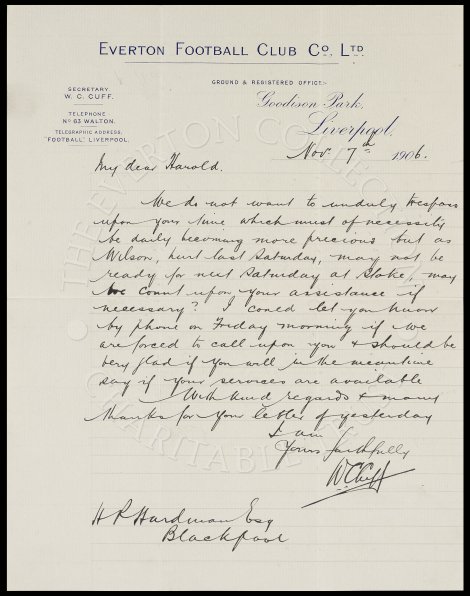 EVERTON FOOTBALL CLUB CO, LTD
GROUND & REGISTERED OFFICE:-
SECRETARY
W. C. CUFF.
Goodison Park,
TELEPHONE
No 63 WALTON.
Liverpool,
TELEGRAPHIC ADDRESS,
"FOOTBALL" LIVERPOOL.
Nov 7th 1906.
My dear Harold,
We do not want to unduly trespass
upon your time which must of necessity
be daily becoming more precious but as
Wilson, hurt last Saturday, may not be
ready for next Saturday at Stoke, may
we count upon your assistance if
necessary? I could let you know
by phone on Friday morning if we
are forced to call upon you & should be
very glad if you will in the meantime
say if your services are available
With kind regards & many
thanks for your letter of yesterday
I am
Yours faithfully
W C Cuff
H P Hardman Esq
Blackpool
THE EVERTON COLLECTION
CHARITABLE